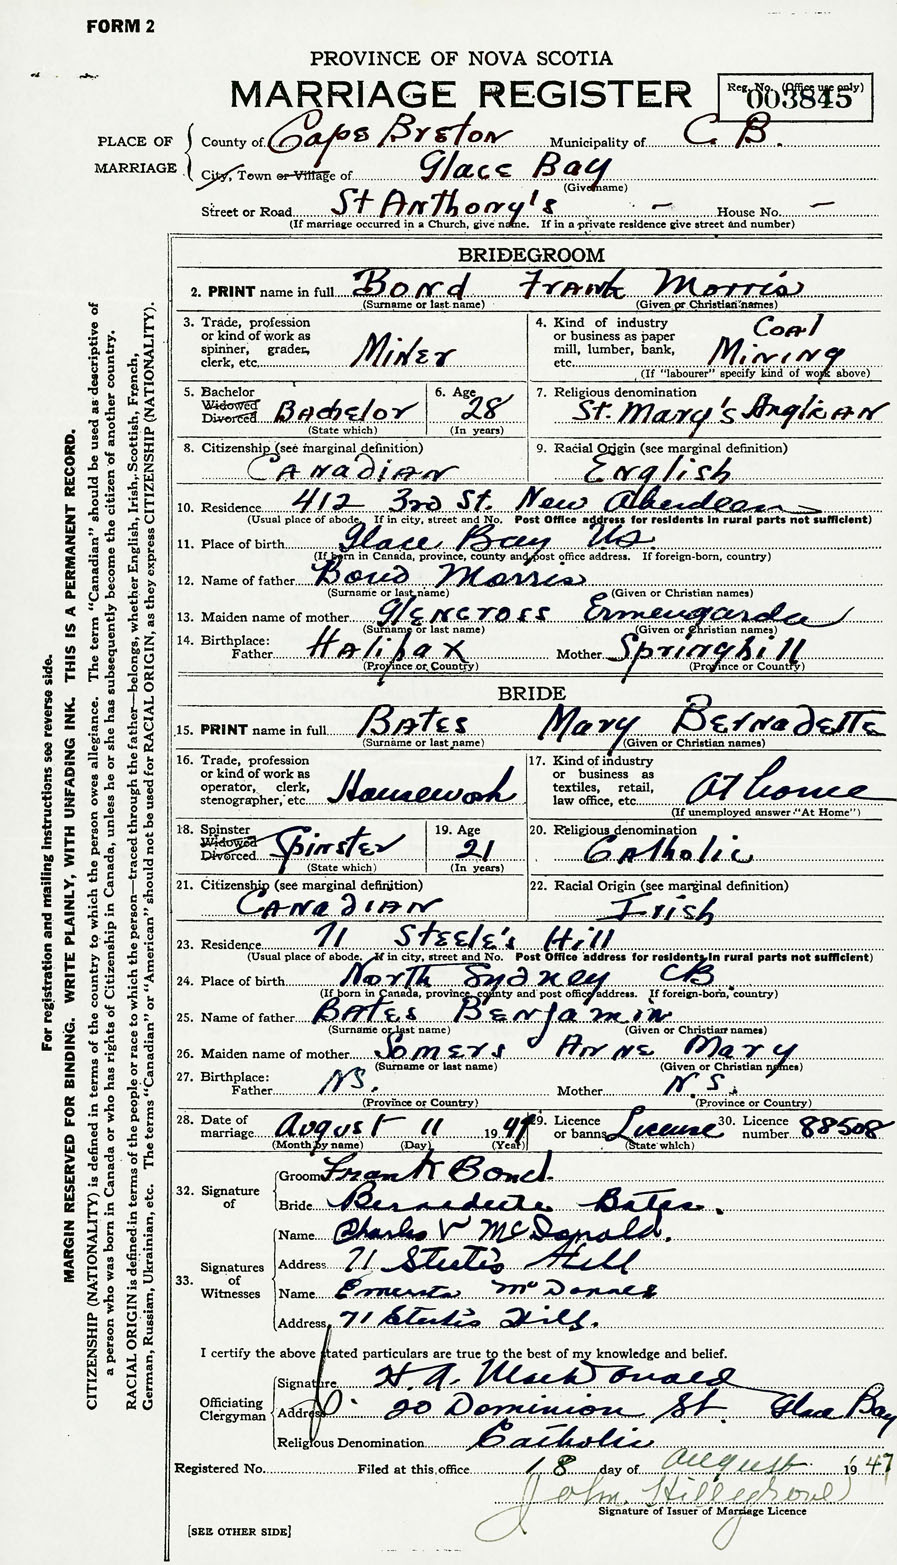 FORM 2
PROVINCE OF NOVA SCOTIA
MARRIAGE REGISTER
Reg. No. (Office use only)
003845
PLACE OF MARRIAGE
County of Cape Breton Municipality of C. B.
City, Town or Village of Glace Bay
(Give name)
Street or Road St Anthony's - House No. -
(If marriage occurred in a Church, give name. If in a private residence give street and number)
BRIDEGROOM
2. PRINT name in full Bond Frank Morris
(Surname or last name) (Given or Christian names)
3. Trade, profession or kind of work as spinner, grader, clerk, etc. Miner
4. Kind of industry or business as paper mill, lumber, bank, etc. Coal Mining
(If "labourer" specify kind of work above)
5. Bachelor Widowed Divorced Bachelor
(State which)
6. Age 28
(In years)
7. Religious denomination
St. Mary's Anglican
8. Citizenship (see marginal definition)
Canadian
9. Racial Origin (see marginal definition)
English
10. Residence 412 3rd St. New Aberdeen
(Usual place of abode. If in city, street and No. Post Office address for residents in rural parts not sufficient)
11. Place of birth Glace Bay NS.
(If born in Canada, province, county and post office address. If foreign-born, country)
12. Name of father Bond Morris
(Surname or last name) (Given or Christian names)
13. Maiden name of mother Glencross Ermengarde
(Surname or last name) (Given or Christian names)
14. Birthplace: Father Halifax Mother Springhill
(Province or Country) (Province or Country)
BRIDE
15. PRINT name in full Bates Mary Bernadette
(Surname or last name) (Given or Christian names)
16. Trade, profession or kind of work as operator, clerk, stenographer, etc. Housework
17. Kind of industry or business as textiles, retail, law office, etc. At home
(If unemployed answer "At Home")
18. Spinster Widowed Divorced Spinster
(State which)
19. Age 21
(In years)
20. Religious denomination
Catholic
21. Citizenship (see marginal definition)
Canadian
22. Racial Origin (see marginal definition)
Irish
23. Residence 71 Steele's Hill
(Usual place of abode. If in city, street and No. Post Office address for residents in rural parts not sufficient)
24. Place of birth North Sydney CB
(If born in Canada, province, county and post office address. If foreign-born, country)
25. Name of father Bates Benjamin
(Surname or last name) (Given or Christian names)
26. Maiden name of mother Somers Anne Mary
(Surname or last name) (Given or Christian names)
27. Birthplace: Father NS. Mother N.S.
(Province or Country) (Province or Country)
28. Date of marriage August 11 1947
(Month by name) (Day) (Year)
29. Licence or banns License
(State which)
30. Licence number 88508
32. Signature of
Groom Frank Bond.
Bride Bernadette Bates.
33. Signatures of Witnesses
Name Charles V McDonald.
Address 71 Steele's Hill
Name McDonald
Address 71 Steele's Hill.
I certify the above stated particulars are true to the best of my knowledge and belief.
Officiating Clergyman
Signature H. A. MacDonald
Address 20 Dominion St. Glace Bay
Religious Denomination Catholic
Registered No. Filed at this office 18 day of August 1947
John Hillgrove
Signature of Issuer of Marriage Licence
[SEE OTHER SIDE]
For registration and mailing instructions see reverse side.
MARGIN RESERVED FOR BINDING. WRITE PLAINLY, WITH UNFADING INK. THIS IS A PERMANENT RECORD.
CITIZENSHIP (NATIONALITY) is defined in terms of the country to which the person owes allegiance. The term "Canadian" should be used as descriptive of
a person who was born in Canada or who has rights of Citizenship in Canada, unless he or she has subsequently become the citizen of another country.
RACIAL ORIGIN is defined in terms of the people or race to which the person—traced through the father—belongs, whether English, Irish, Scottish, French,
German, Russian, Ukrainian, etc. The terms "Canadian" or "American" should not be used for RACIAL ORIGIN, as they express CITIZENSHIP (NATIONALITY).